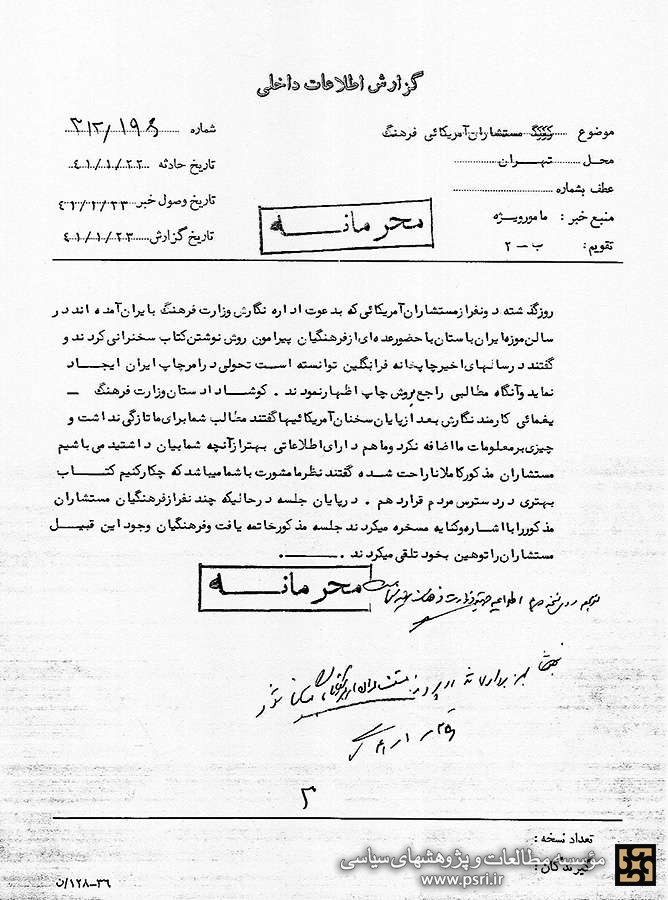 گزارش اطلاعات داخلی
موضوع مستشاران آمریکائی فرهنگ
شماره ۳۱۲/۱۹
محل تهران
تاریخ حادثه ۴۱/۱/۲۲
عطف بشماره
تاریخ وصول خبر ۴۱/۱/۲۳
منبع خبر : مامورویژه
محرمانه
تاریخ گزارش ۴۱/۱/۲۳
تقویم : ب - ۲
روزگذشته دونفرازمستشاران آمریکائی که بدعوت اداره نگارش وزارت فرهنگ بایران آمده اند در
سالن موزه ایران باستان با حضورعده ای ازفرهنگیان پیرامون روش نوشتن کتاب سخنرانی کردند و
گفتند درسالهای اخیرچاپخانه فرانکلین توانسته است تحولی درامرچاپ ایران ایجاد
نماید وآنگاه مطالبی راجع بروش چاپ اظهارنمودند . کوشا دادستان وزارت فرهنگ ـ
یغمائی کارمند نگارش بعد ازپایان سخنان آمریکائیها گفتند مطالب شما برای ما تازگی نداشت و
چیزی برمعلومات ما اضافه نکرد وما هم دارای اطلاعاتی بهترازآنچه شما بیان داشتید می باشیم
مستشاران مذکورکاملا ناراحت شده گفتند نظرما مشورت با شما میباشد که چکارکنیم کتاب
بهتری دردسترس مردم قراردهم . درپایان جلسه درحالیکه چند نفرازفرهنگیان مستشاران
مذکوررا با اشاره وکنایه مسخره میکردند جلسه مذکورخاتمه یافت وفرهنگیان وجود این قبیل
مستشاران راتوهین بخود تلقی میکردند .
محرمانه
۳
تعداد نسخه :
گیرندگان :
مؤسسه مطالعات و پژوهشهای سیاسی
www.psri.ir
۳۶-۱۲۸/ن